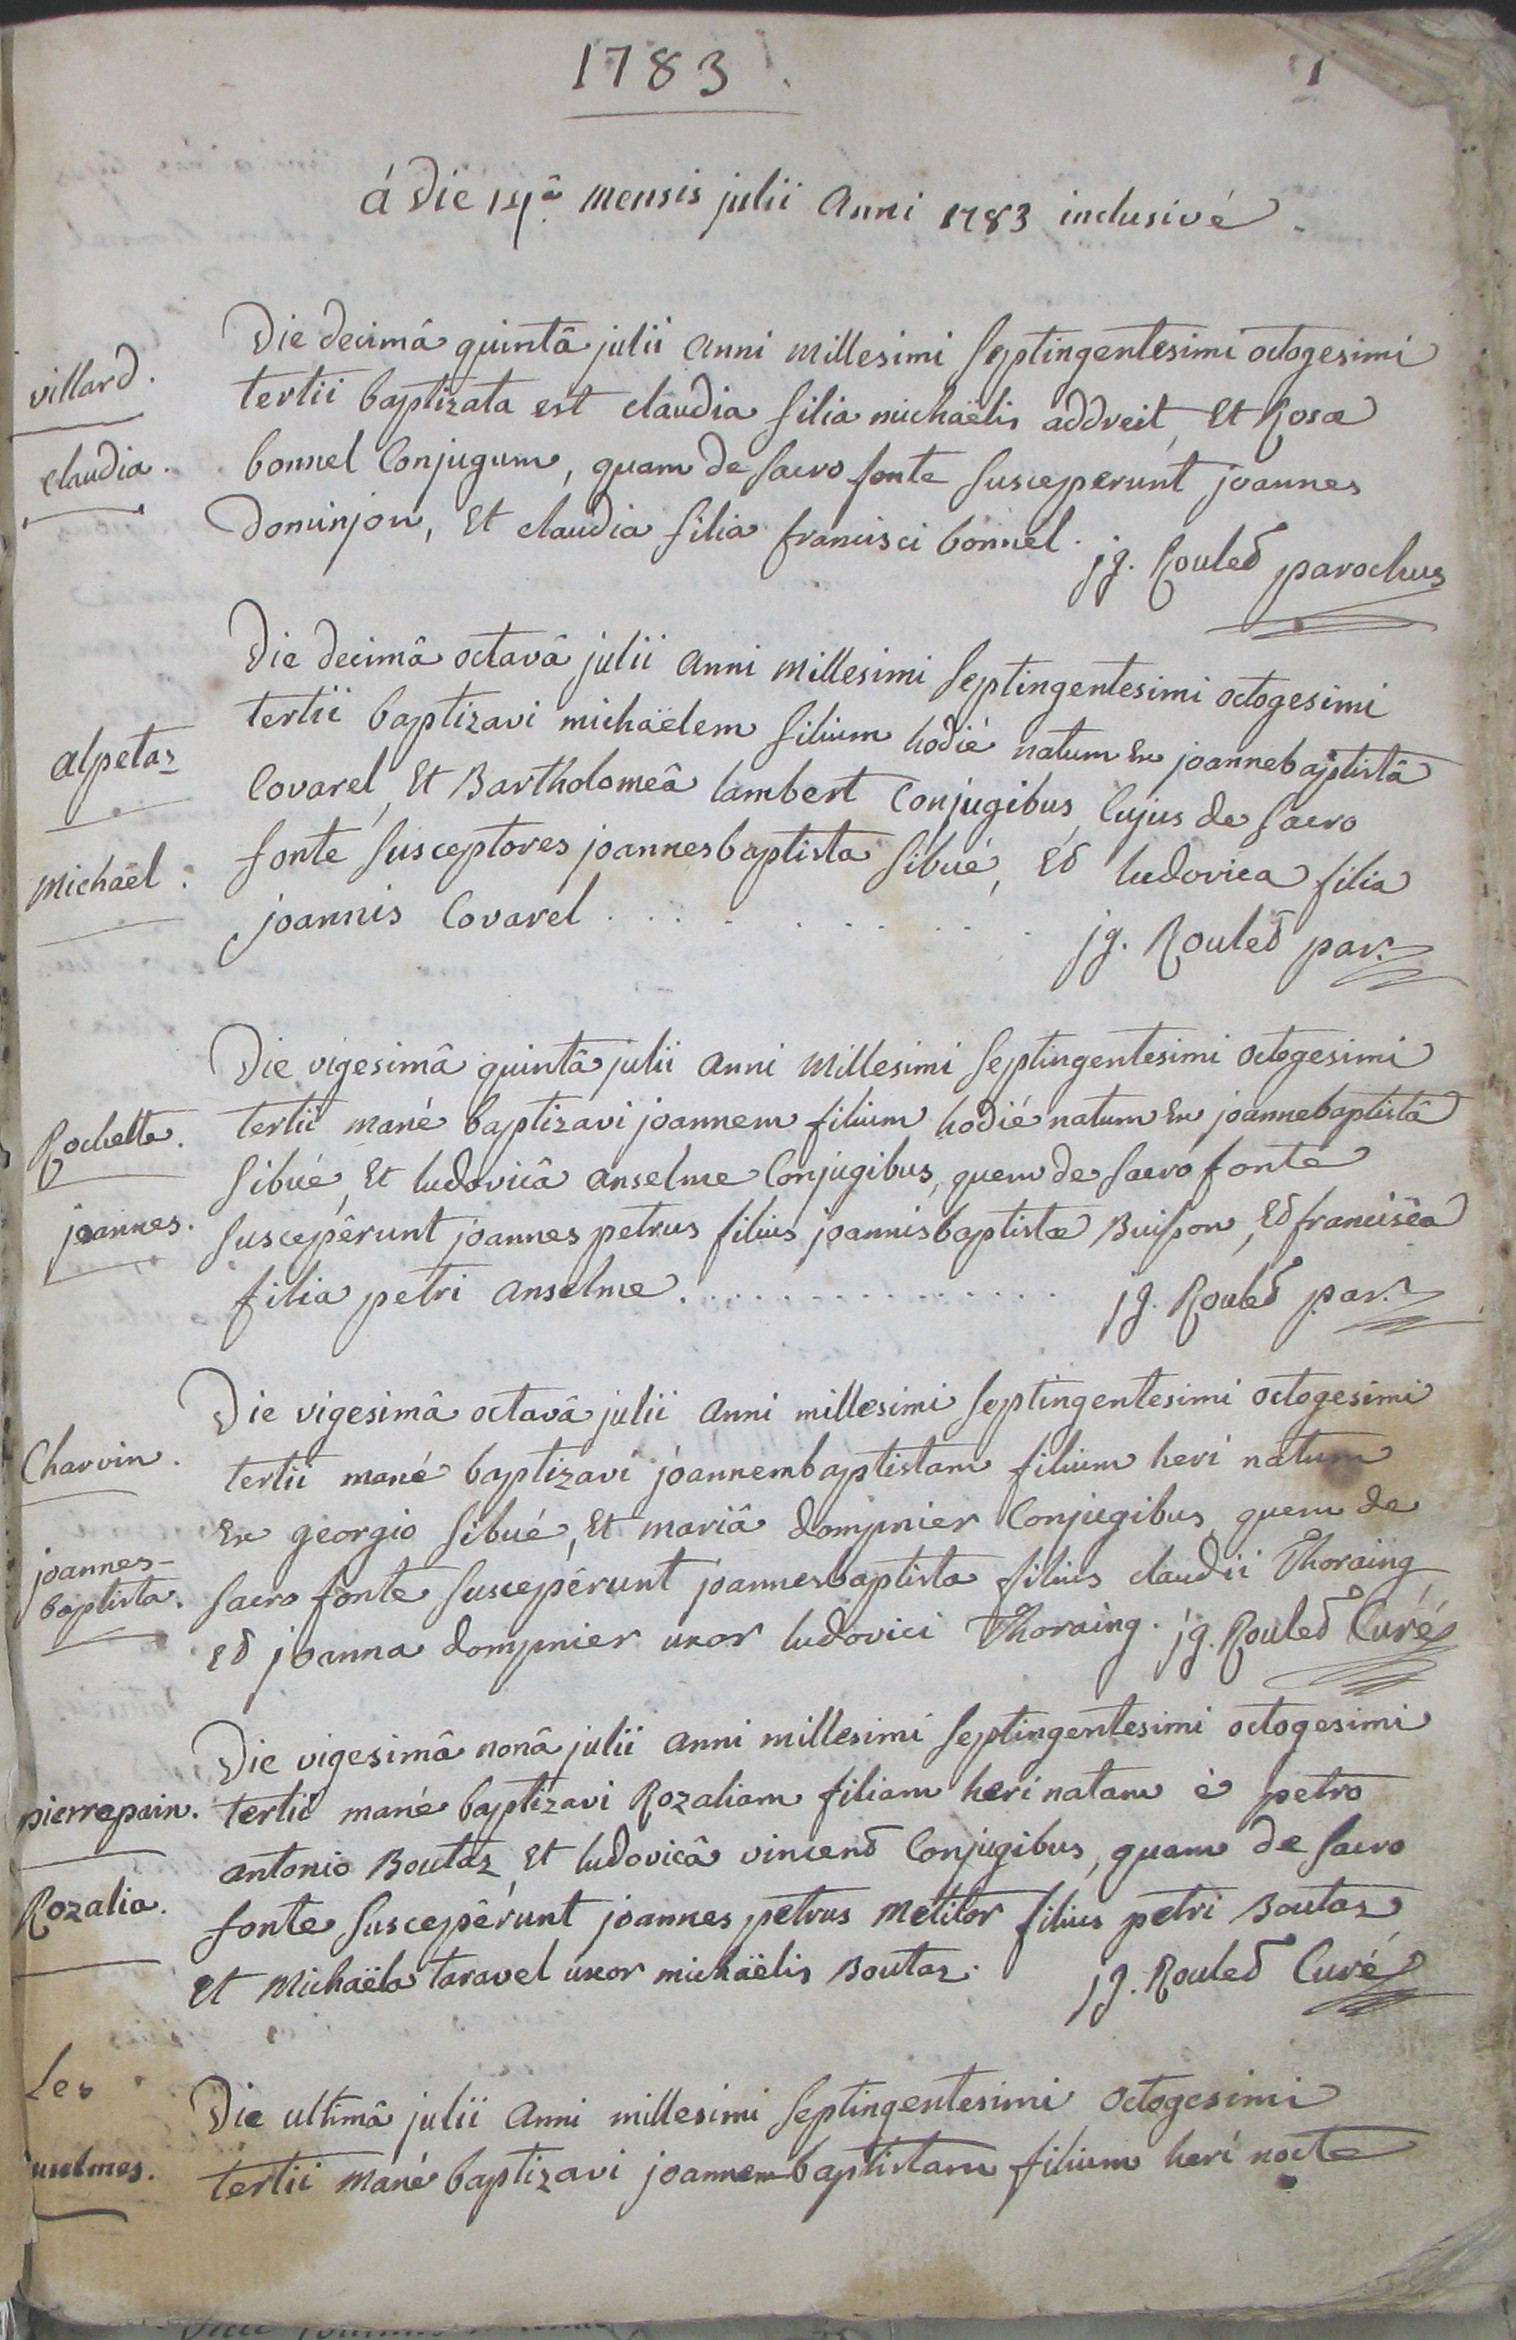 1783.
1
á die 14â mensis julii anni 1783 inclusivé.
villard.
claudia.
Die decimâ quintâ julii anni millesimi septingentesimi octogesimi
tertii baptizata est claudia filia michaëlis addveit, Et Rosæ
bonnel Conjugum, quam de sacro fonte susceperunt joannes
Dominjon, Et claudia filia francisci bonnel. jg. Rouled parochus
alpetaz
Michaël.
Die decimâ octavâ julii anni millesimi septingentesimi octogesimi
tertii baptizavi michaëlem filium hodié natum Ex joannebaptistâ
Covarel, Et Bartholomeâ lambert Conjugibus, Cujus de sacro
fonte susceptores joannesbaptista sibué, Ed ludovica filia
joannis Covarel . . . . . . . . jg. Rouled par.
Rochette.
joannes.
Die vigesimâ quintâ julii anni millesimi septingentesimi octogesimi
tertii mané baptizavi joannem filium hodié natum Ex joannebaptistâ
sibué, Et ludovicâ anselme Conjugibus, quem de sacro fonte
suscepêrunt joannes petrus filius joannisbaptistæ Buisson, Ed francisca
filia petri anselme . . . . . . . . . . . . . . . jg. Rouled par.
Charvin.
joannes-
baptista.
Die vigesimâ octavâ julii anni millesimi septingentesimi octogesimi
tertii mané baptizavi joannembaptistam filium heri natum
Ex georgio sibué, Et mariâ dompnier Conjugibus, quem de
sacro fonte suscepêrunt joannesbaptista filius claudii Thoraing
Ed joanna dompnier uxor ludovici Thoraing. jg. Rouled Curé
pierrepain.
Rozalia.
Die vigesimâ nonâ julii anni millesimi septingentesimi octogesimi
tertii mané baptizavi Rozaliam filiam heri natam è petro
antonio Boutaz, Et ludovicâ vincend Conjugibus, quam de sacro
fonte suscepêrunt joannes petrus Metitor filius petri Boutaz
Et Michaëla taravel uxor michaëlis Boutaz. jg. Rouled Curé
Les
nselmes.
Die ultimâ julii anni millesimi septingentesimi octogesimi
tertii mané baptizavi joannem-baptistam filium heri nocte